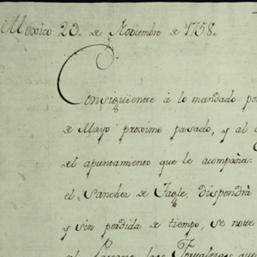 Mexico 23. de Noviembre de 1758.
Consiguiente á lo mandado por
de Mayo proximo pasado, y al
el apuntamento que le acompaña
el Sanchez de Tagle, dispondrá
y sin perdida de tiempo, se
al las que